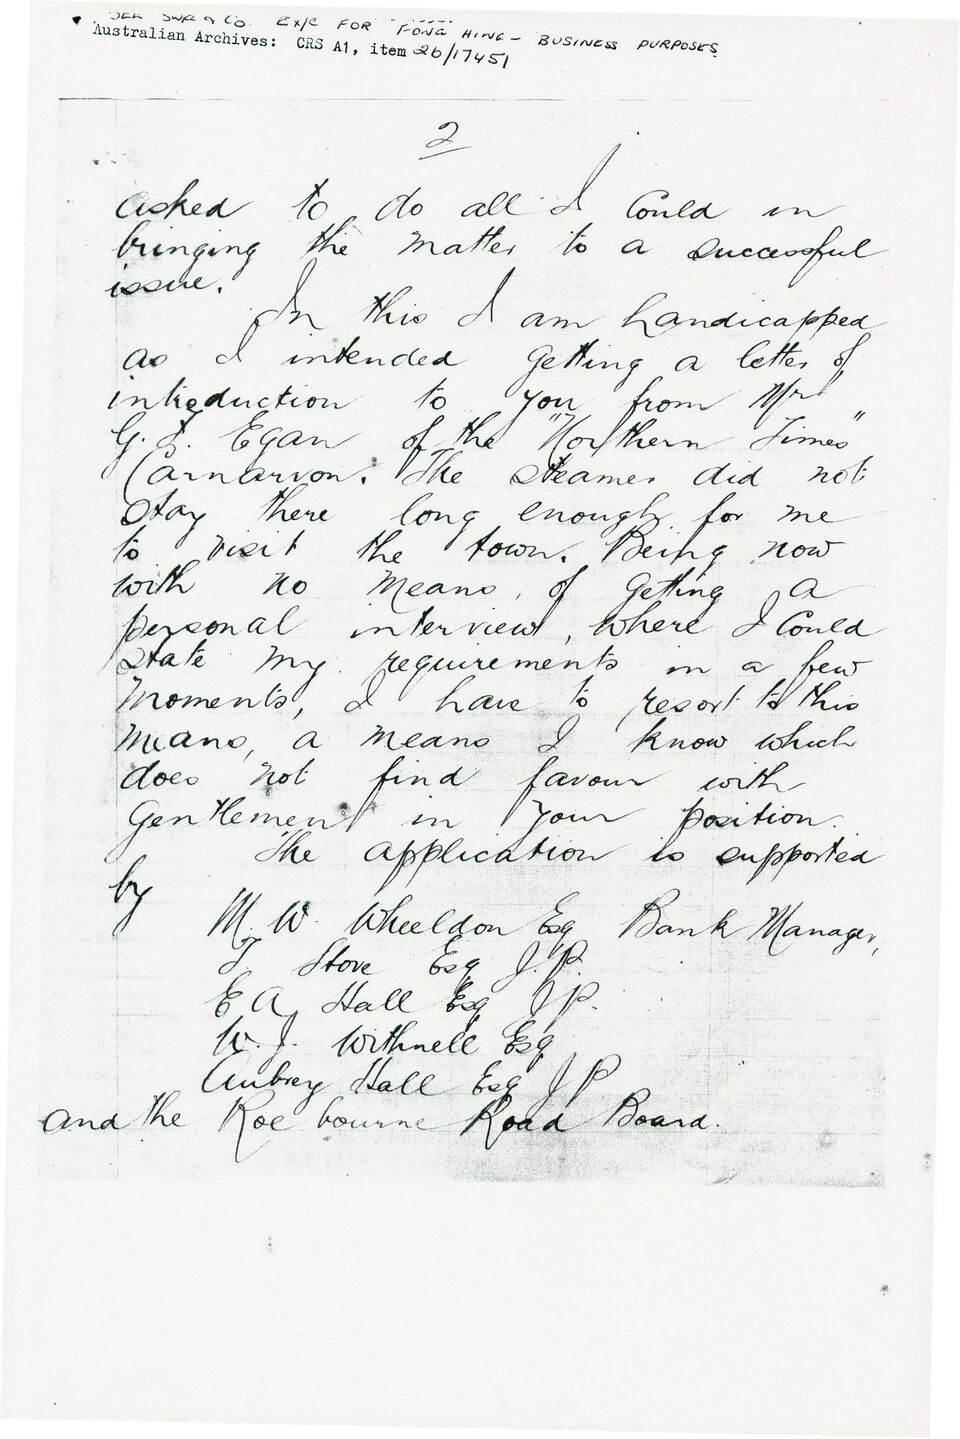 SEE SWE & Co. EX/C FOR FONG HING - BUSINESS PURPOSES
Australian Archives: CRS A1, item 26/17451
2
asked to do all I Could in
bringing the matter to a successful
issue.
In this I am handicapped
as I intended getting a letter of
introduction to you from Mr
G. Egan of the "Northern Times"
Carnarvon. The steamer did not
stay there long enough for me
to visit the town. Being now
with no means, of getting a
personal interview, where I Could
state my requirements in a few
moments, I have to resort to this
means, a means I know which
does not find favour with
Gentlemen in your position.
The application is supported
by
M. W. Wheeldon Esq Bank Manager,
Stove Esq J.P.
E A Hall Esq JP.
W. J. Withnell Esq
Aubrey Hall Esq JP
and the Roebourne Road Board.